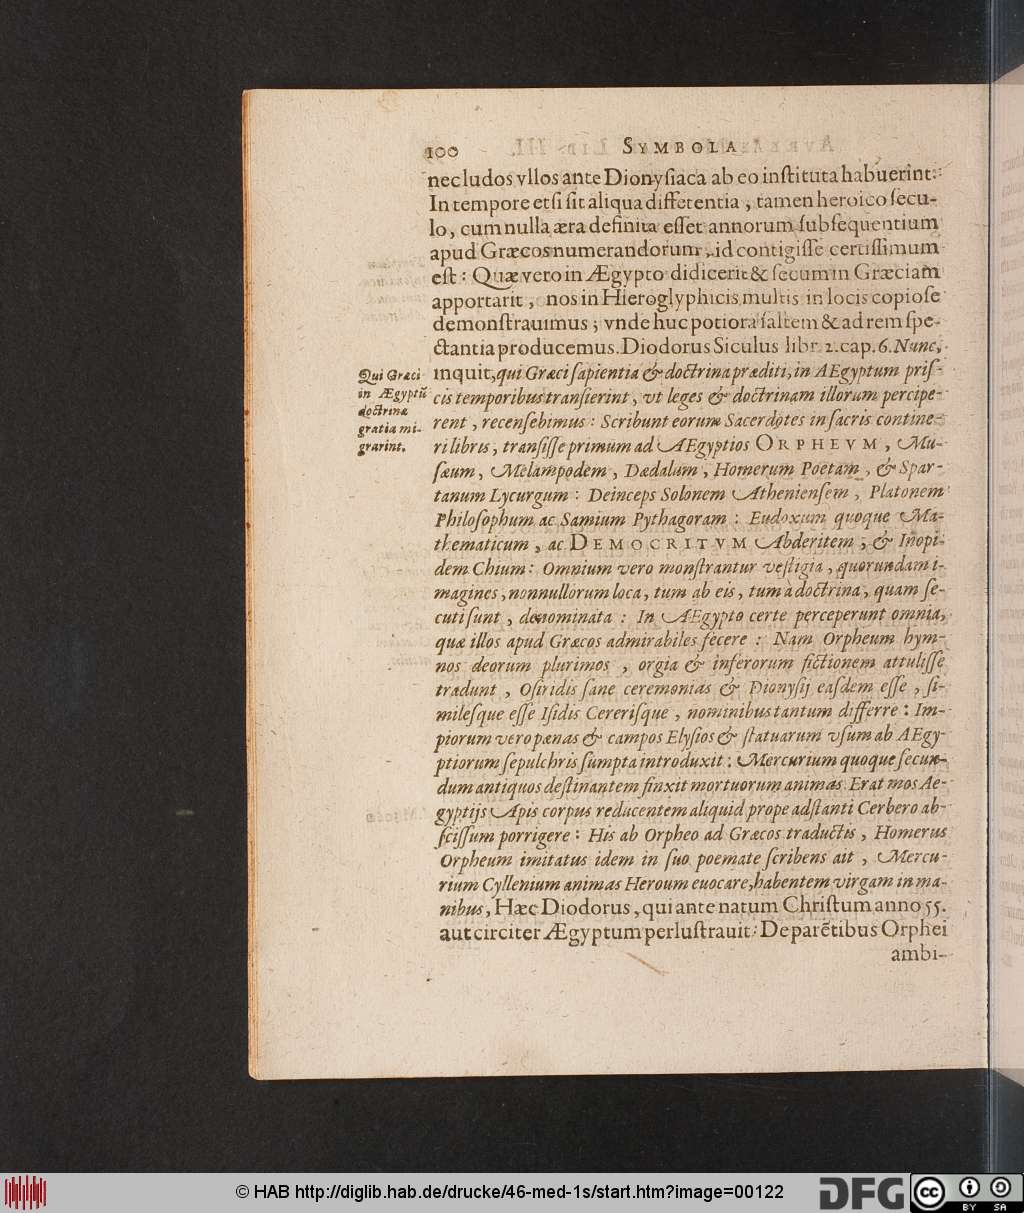 100 SYMBOLA
nec ludos vllos ante Dionysiaca ab eo instituta habuerint:
In tempore etsi sit aliqua differentia, tamen heroico secu-
lo, cum nulla æra definita esset annorum subsequentium
apud Græcos numerandorum, id contigisse certissimum
est: Quæ vero in Ægypto didicerit & secum in Græciam
apportarit, nos in Hieroglyphicis multis in locis copiose
demonstrauimus; vnde huc potiora saltem & ad rem spe-
ctantia producemus. Diodorus Siculus libr. 2. cap. 6. Nunc,
inquit, qui Græci sapientia & doctrina præditi, in AEgyptum pris-
cis temporibus transierint, vt leges & doctrinam illorum percipe-
rent, recensebimus: Scribunt eorum Sacerdotes in sacris contine-
ri libris, transisse primum ad AEgyptios ORPHEVM, Mu-
sæum, Melampodem, Dædalum, Homerum Poetam, & Spar-
tanum Lycurgum: Deinceps Solonem Atheniensem, Platonem
Philosophum ac Samium Pythagoram: Eudoxum quoque Ma-
thematicum, ac DEMOCRITVM Abderitem, & Inopi-
dem Chium: Omnium vero monstrantur vestigia, quorundam i-
magines, nonnullorum loca, tum ab eis, tum à doctrina, quam se-
cuti sunt, denominata: In AEgypto certe perceperunt omnia,
quæ illos apud Græcos admirabiles fecere: Nam Orpheum hym-
nos deorum plurimos, orgia & inferorum fictionem attulisse
tradunt, Osiridis sane ceremonias & Dionysij easdem esse, si-
milesque esse Isidis Cererisque, nominibus tantum differre: Im-
piorum vero pænas & campos Elysios & statuarum vsum ab AEgy-
ptiorum sepulchris sumpta introduxit: Mercurium quoque secun-
dum antiquos destinantem finxit mortuorum animas. Erat mos Ae-
gyptijs Apis corpus reducentem aliquid prope adstanti Cerbero ab-
scissum porrigere: His ab Orpheo ad Græcos traductis, Homerus
Orpheum imitatus idem in suo poemate scribens ait, Mercu-
rium Cyllenium animas Heroum euocare, habentem virgam in ma-
nibus, Hæc Diodorus, qui ante natum Christum anno 55.
aut circiter Ægyptum perlustrauit: De parẽtibus Orphei
ambi-
Qui Græci
in Ægyptũ
doctrinæ
gratia mi-
grarint.
© HAB http://diglib.hab.de/drucke/46-med-1s/start.htm?image=00122
DFG
cc BY SA